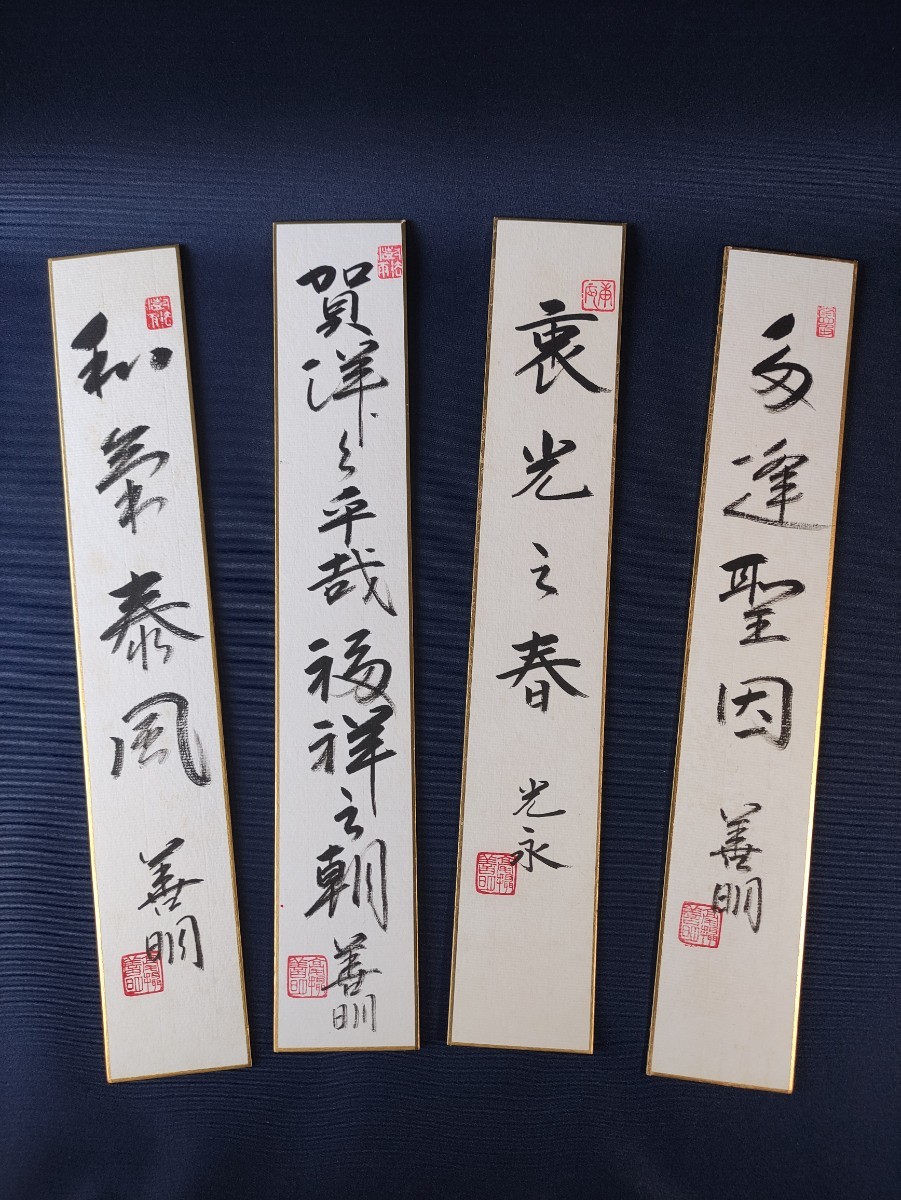 多逢聖因
善明
衷光之春
光永
賀洋々乎哉福祥之朝
善明
和氣泰風
善明